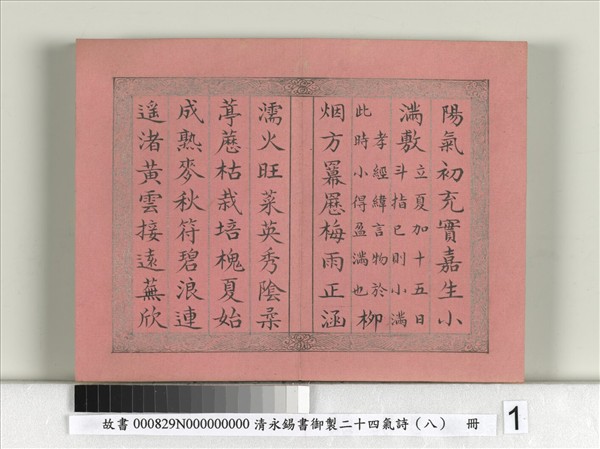 陽氣初充實嘉生小
滿敷
立夏加十五日
斗指巳則小滿
孝經緯言物於
此時小得盈滿也
柳
烟方羃梅雨正涵
濡火旺菜英秀陰柔
葶藶枯栽培槐夏始
成熟麥秋符碧浪連
遙渚黃雲接遠蕪欣
故書 000829N000000000 清永錫書御製二十四氣詩（八） 冊
1